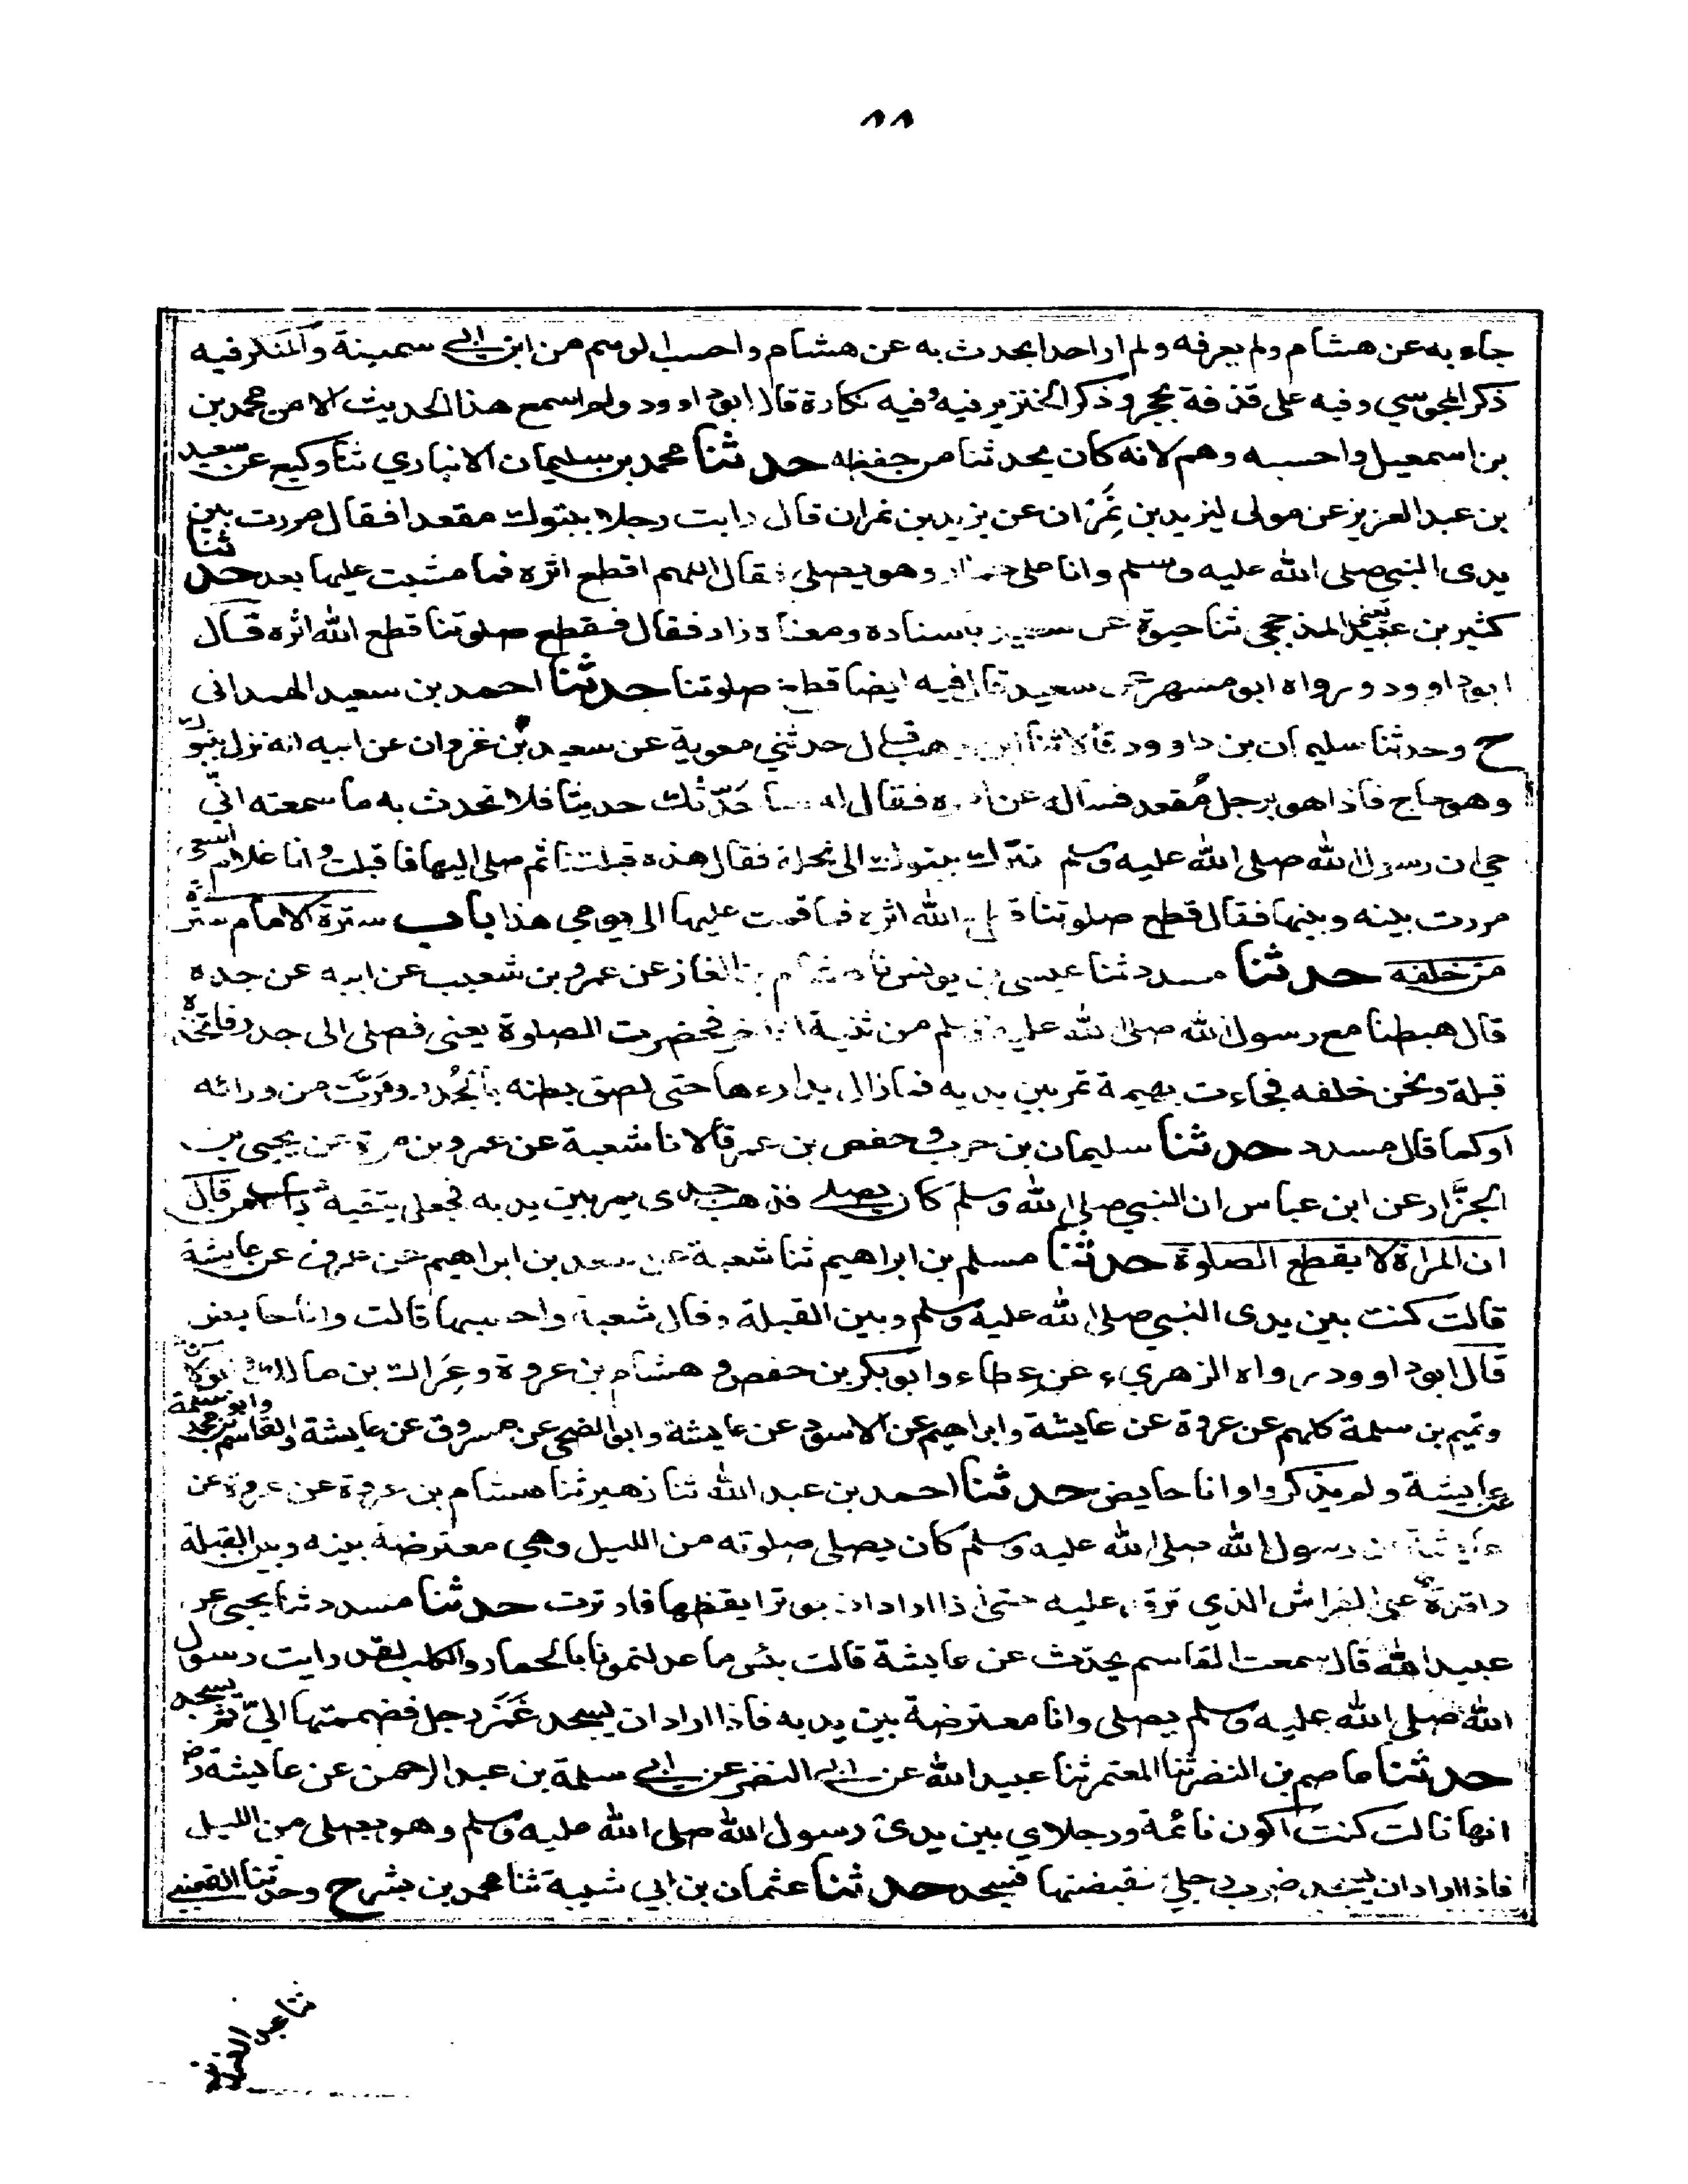 ٨٨
جاء به عن هشام ولم يعرفه ولم ار احدا يحدث به عن هشام واحسب الوهم من ابن ابي سمينة والمنكر فيه
ذكر المجوسي وفيه على قذفة بحجر وذكر الخنزير فيه وفيه نكارة قال ابو داوود ولم اسمع هذا الحديث الا من محمد بن
بن اسمعيل واحسبه وهم لانه كان يحدثنا من حفظه حدثنا محمد بن سليمان الانباري ثنا وكيع عن سعيد
بن عبد العزيز عن مولى ليزيد بن نمران عن يزيد بن نمران قال رايت رجلا بتبوك مقعدا فقال مررت بين
يدى النبي صلى الله عليه وسلم وانا على حمار وهو يصلي فقال اللهم اقطع اثره فما مشيت عليها بعد حدثنا
كثير بن عبيد يعنى المذحجي ثنا حيوة عن سعيد باسناده ومعناه زاد فقال قطع صلوتنا قطع الله اثره قال
ابو داوود ورواه ابو مسهر عن سعيد قال فيه ايضا قطع صلوتنا حدثنا احمد بن سعيد الهمداني
ح وحدثنا سليمان بن داوود قالا ثنا ابن وهب قال حدثني معوية عن سعيد بن غزوان عن ابيه انه نزل بتبوك
وهو حاج فاذا هو برجل مقعد فساله عن امره فقال له سا حدّثك حديثا فلا تحدث به ما سمعته انّي
حي ان رسول الله صلى الله عليه وسلم نزل بتبوك الى نخلة فقال هذه قبلتنا ثم صلى اليها فاقبلت وانا غلام اسعى
مررت بينه وبينها فقال قطع صلوتنا قطع الله اثره فما قمت عليها الى يومي هذا باب سترة الامام سترة
من خلفه حدثنا مسدد ثنا عيسى بن يونس نا هشام بن الغاز عن عمرو بن شعيب عن ابيه عن جده
قال هبطنا مع رسول الله صلى الله عليه وسلم من ثنية اذاخر فحضرت الصلوة يعنى فصلى الى جدر فاتخذه
قبلة ونحن خلفه فجاءت بهيمة تمر بين يديه فما زال يدارءها حتى لصق بطنه بالجُدر ومَرّت من ورائه
او كما قال مسدد حدثنا سليمان بن حرب وحفص بن عمر قالا نا شعبة عن عمرو بن مرة عن يحيى بن
الجزّار عن ابن عباس ان النبي صلى الله وسلم كان يصلي فذهب جدى يمر بين يديه فجعل يتقيه باب من قال
ان المراة لا يقطع الصلوة حدثنا مسلم بن ابراهيم ثنا شعبة عن سعد بن ابراهيم عن عروة عن عايشة
قالت كنت بين يدى النبي صلى الله عليه وسلم وبين القبلة وقال شعبة واحسبها قالت وانا حايض
قال ابو داوود رواه الزهري وعطاء وابو بكر بن حفص وهشام بن عروة وعراك بن مالك وابو الاسود
وتميم بن سلمة كلهم عن عروة عن عايشة وابراهيم عن الاسود عن عايشة وابو الضحى عن مسروق عن عايشة والقاسم بن محمد وابو سلمة
عن عايشة ولم يذكروا وانا حايض حدثنا احمد بن عبد الله ثنا زهير ثنا هشام بن عروة عن عروة عن
عايشة ان رسول الله صلى الله عليه وسلم كان يصلى صلوته من الليل وهي معترضة بينه وبين القبلة
راقدة على الفراش الذي ترقد عليه حتى اذا اراد ان يوتر ايقظها فاوترت حدثنا مسدد ثنا يحيى عن
عبيد الله قال سمعت القاسم يحدّث عن عايشة قالت بئس ما عدلتمونا بالحمار والكلب لقد رايت رسول
الله صلى الله عليه وسلم يصلى وانا معترضة بين يديه فاذا اراد ان يسجد غَمَزَ رجلى فضممتها اليّ ثم يسجد
حدثنا عاصم بن النضر ثنا المعتمر ثنا عبيد الله عن ابي النضر عن ابي سلمة بن عبد الرحمن عن عايشة رض
انها قالت كنت اكون نائمة ورجلاي بين يدى رسول الله صلى الله عليه وسلم وهو يصلى من الليل
فاذا اراد ان يسجد ضرب رجليّ فقبضتها فيسجد حدثنا عثمان بن ابي شيبة ثنا محمد بن بشر ح وحدثنا القعنبي
ثنا عبد العزيز